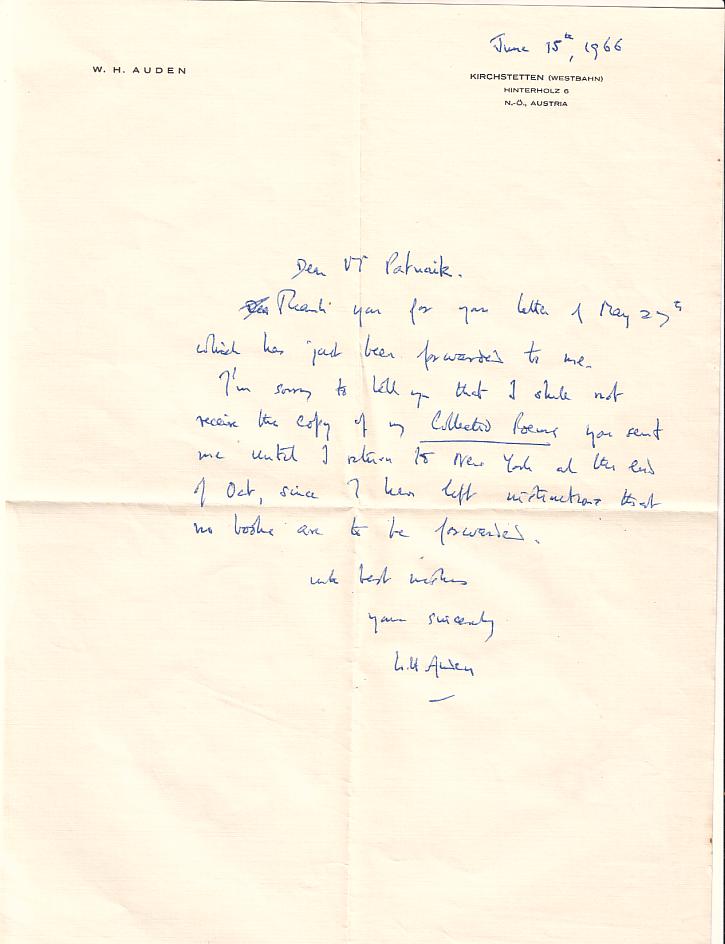 June 15th, 1966
W. H. AUDEN
KIRCHSTETTEN (WESTBAHN)
HINTERHOLZ 6
N.-Ö., AUSTRIA
Dear Patnaik.
Thank you for your letter of May 27th
which has just been forwarded to me.
I'm sorry to tell you that I shall not
receive the copy of my Collected Poems you sent
me until I return to New York at the end
of Oct, since I have left instructions that
no books are to be forwarded.
with best wishes
yours sincerely
W.H Auden